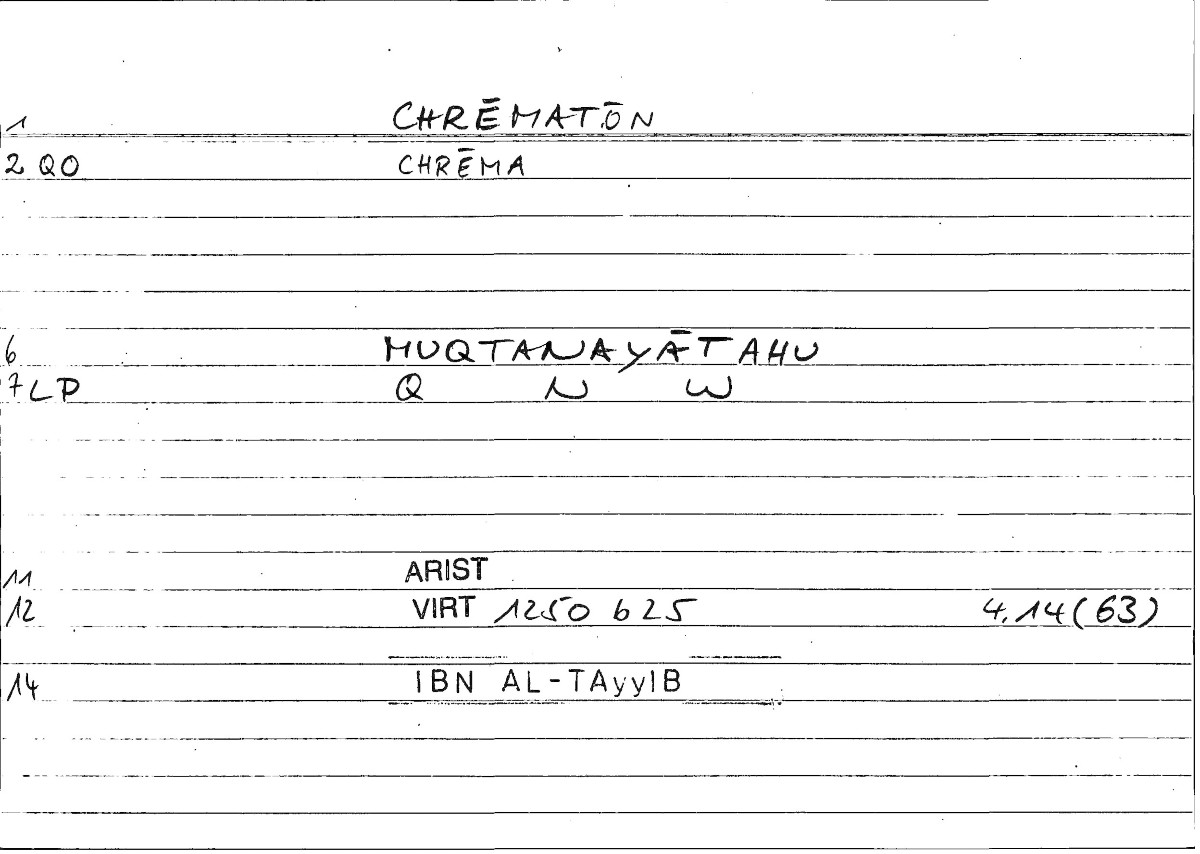 1 CHRĒMATŌN
2 QO CHRĒMA
6 MUQTANAYĀTAHU
7 LP Q N W
11 ARIST
12 VIRT 1250 b 25 4.14(63)
14 IBN AL-TAyyIB